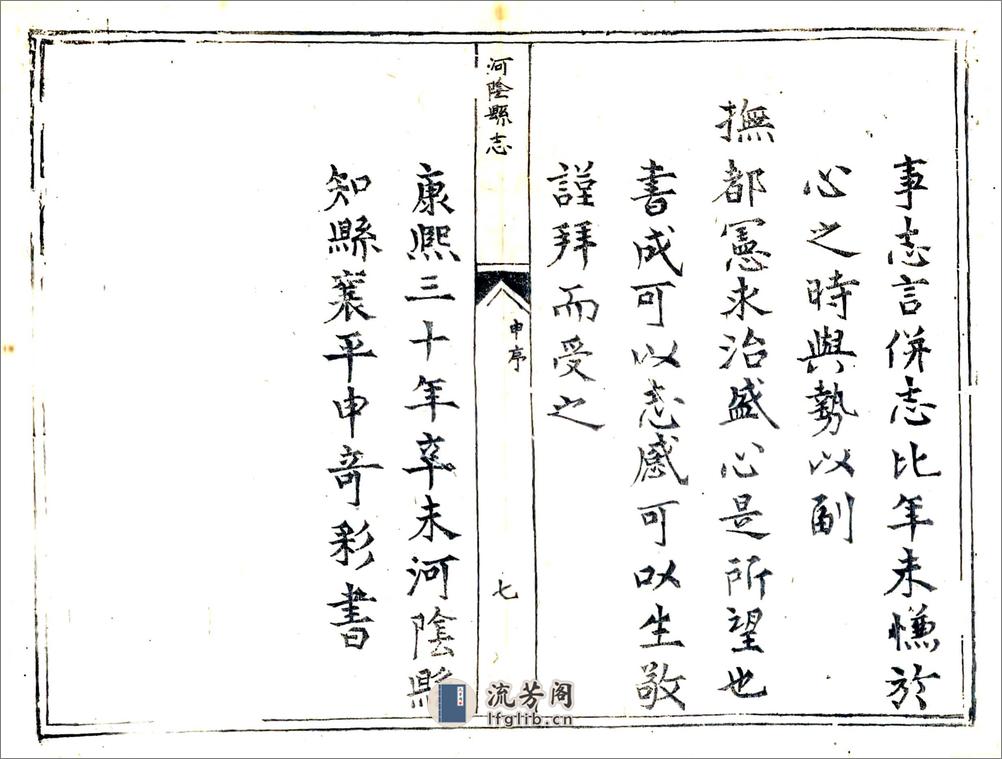 事志言併志比年未慊於
心之時與勢以副
撫都憲求治盛心是所望也
書成可以志感可以生敬
謹拜而受之
河陰縣志
申序
七
康熙三十年辛未河陰縣
知縣襄平申奇彩書
流芳阁
lfglib.cn